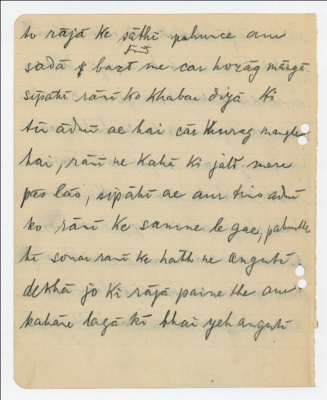 to rājā ke sāthī pahunce aur
tīnō
sadā f bazī me car horāg māngē
sipāhī rānī ko khabar diyā ki
tīn ādmī ae hai cār khurag mangte
hai, rānī ne kahā ki jāo mere
pas lāo, sipāhī ae aur tino ādmī
ko rānī ke samne le gae, pahuncte
hi sonar rani ke hath me anguthī
dekhā jo ki rājā paine the aur
kahane lagā ki bhai yeh anguthi